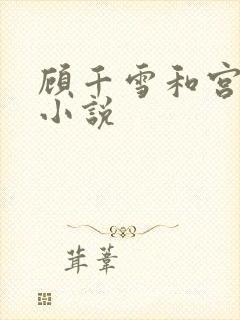 顾千雪和宫
小说
茸葦